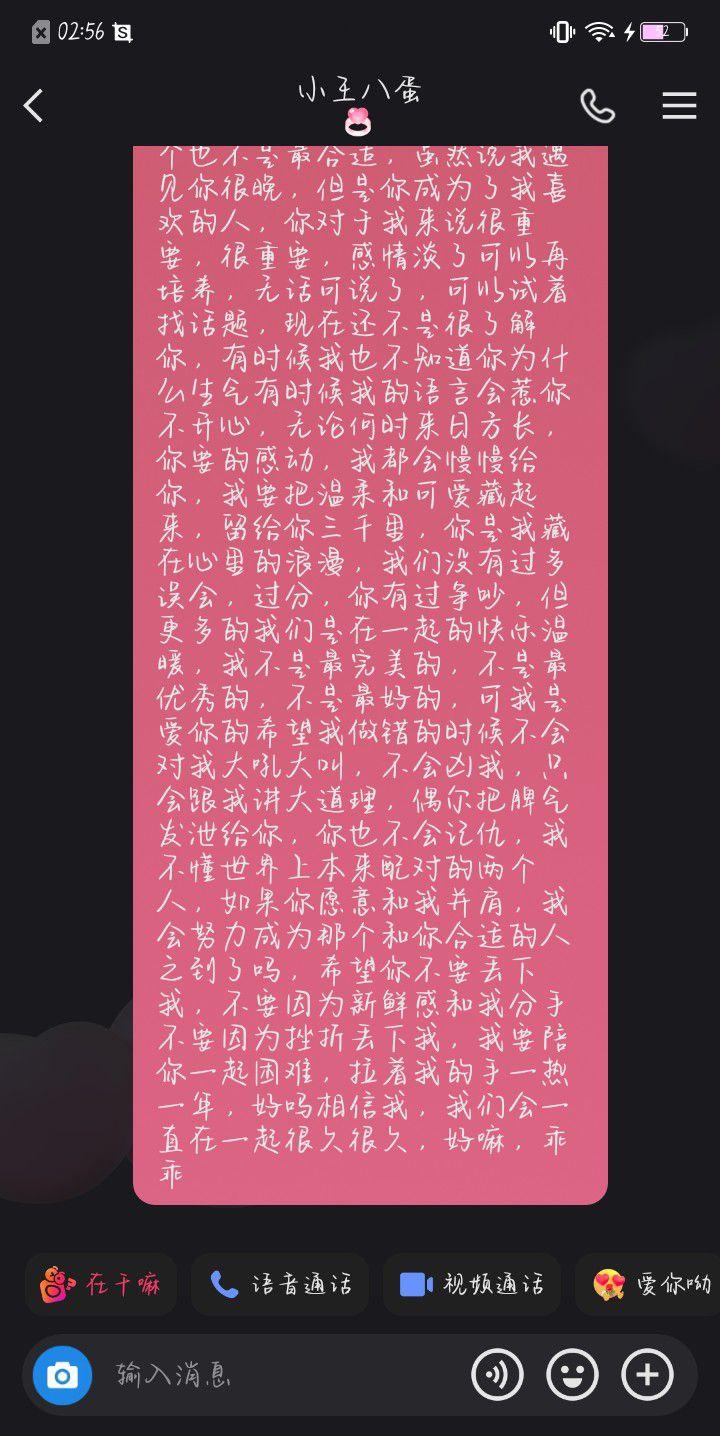 02:56
52
小王八蛋
个也不是最合适，虽然说我遇
见你很晚，但是你成为了我喜
欢的人，你对于我来说很重
要，很重要，感情淡了可以再
培养，无话可说了，可以试着
找话题，现在还不是很了解
你，有时候我也不知道你为什
么生气有时候我的语言会惹你
不开心，无论何时来日方长，
你要的感动，我都会慢慢给
你，我要把温柔和可爱藏起
来，留给你三千里，你是我藏
在心里的浪漫，我们没有过多
误会，过分，你有过争吵，但
更多的我们是在一起的快乐温
暖，我不是最完美的，不是最
优秀的，不是最好的，可我是
爱你的希望我做错的时候不会
对我大吼大叫，不会凶我，只
会跟我讲大道理，偶尔把脾气
发泄给你，你也不会记仇，我
不懂世界上本来配对的两个
人，如果你愿意和我并肩，我
会努力成为那个和你合适的人
之到了吗，希望你不要丢下
我，不要因为新鲜感和我分手
不要因为挫折丢下我，我要陪
你一起困难，拉着我的手一热
一年，好吗相信我，我们会一
直在一起很久很久，好嘛，乖
乖
在干嘛
语音通话
视频通话
爱你呦
输入消息